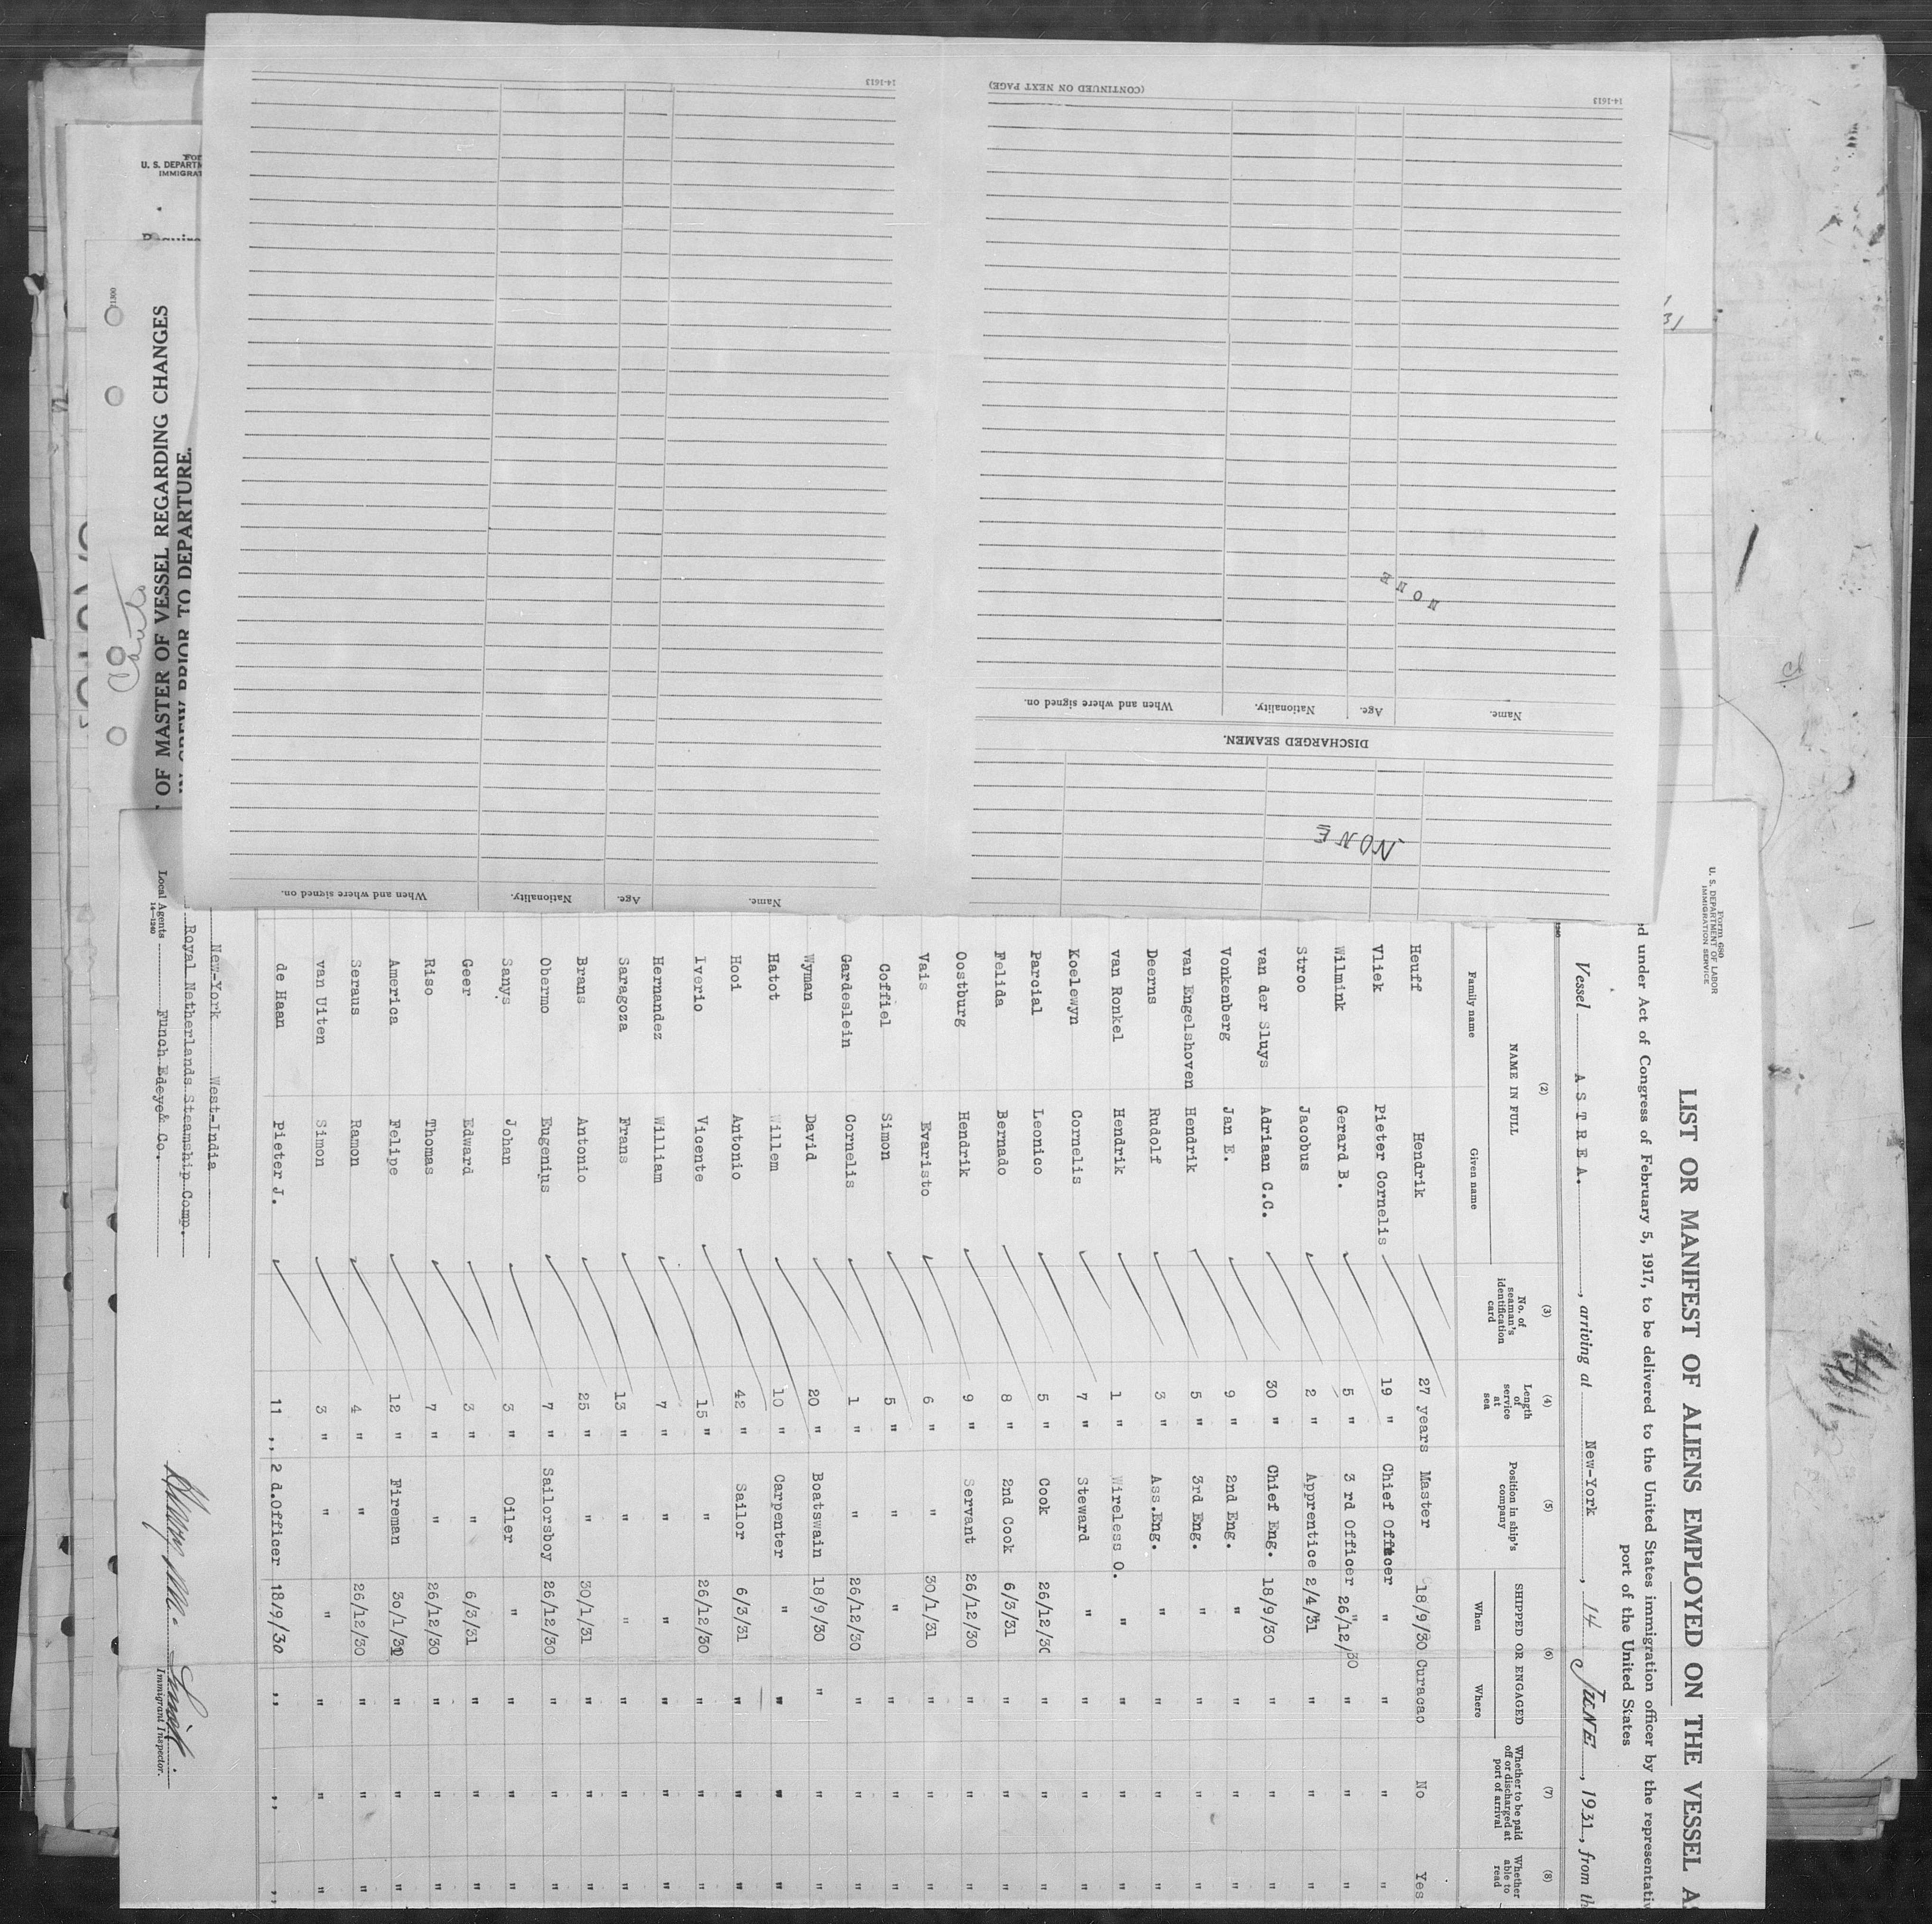 Form 680
U. S. DEPARTMENT OF LABOR
IMMIGRATION SERVICE
LIST OR MANIFEST OF ALIENS EMPLOYED ON THE VESSEL AS
ed under Act of Congress of February 5, 1917, to be delivered to the United States immigration officer by the representativ
port of the United States
Vessel ASTREA. , arriving at New-York , 14 JUNE , 1931, from th
(2) (3) (4) (5) (6) (7) (8)
NAME IN FULL No. of seaman's identification card Length of service at sea Position in ship's company SHIPPED OR ENGAGED Whether to be paid off or discharged at port of arrival Whether able to read
Family name Given name When Where
Heuff Hendrik 27 years Master 18/9/30 Curacao No Yes
Vliek Pieter Cornelis 19 " Chief Officer " " " "
Wilmink Gerard B. 5 " 3 rd Officer 26/12/30 " " "
Stroo Jacobus 2 " Apprentice 2/4/31 " " "
van der Sluys Adriaan C.C. 30 " Chief Eng. 18/9/30 " " "
Vonkenberg Jan E. 9 " 2nd Eng. " " " "
van Engelshoven Hendrik 5 " 3rd Eng. " " " "
Deerns Rudolf 3 " Ass.Eng. " " " "
van Ronkel Hendrik 1 " Wireless O. " " " "
Koelewyn Cornelis 7 " Steward " " " "
Parcial Leonico 5 " Cook 26/12/30 " " "
Felida Bernado 8 " 2nd Cook 6/3/31 " " "
Oostburg Hendrik 9 " Servant 26/12/30 " " "
Vais Evaristo 6 " " 30/1/31 " " "
Coffiel Simon 5 " " " " " "
Gardeslein Cornelis 1 " " 26/12/30 " " "
Wyman David 20 " Boatswain 18/9/30 " " "
Hatot Willem 10 " Carpenter " " " "
Hooi Antonio 42 " Sailor 6/3/31 " " "
Iverio Vicente 15 " " 26/12/30 " " "
Hernandez William 7 " " " " " "
Saragoza Frans 13 " " " " " "
Brans Antonio 25 " " 30/1/31 " " "
Obermo Eugenius 7 " Sailorsboy 26/12/30 " " "
Sanys Johan 3 " Oiler " " " "
Geer Edward 3 " " 6/3/31 " " "
Riso Thomas 7 " " 26/12/30 " " "
America Felipe 12 " Fireman 30/1/31 " " "
Seraus Ramon 4 " " 26/12/30 " " "
van Uiten Simon 3 " " " " " "
de Haan Pieter J. 11 ,, 2 d.Officer 18/9/30 ,, ,, ,,
New-York West-India
Royal Netherlands Steamship Comp.
Local Agents Funch Edeye& Co.
14—1240
Immigrant Inspector.
NONE
DISCHARGED SEAMEN.
Name. Age. Nationality. When and where signed on.
NONE
14-1613
(CONTINUED ON NEXT PAGE)
Name. Age. Nationality. When and where signed on.
14-1613
U. S. DEPARTM
IMMIGRAT
Require
OF MASTER OF VESSEL REGARDING CHANGES
PRIOR TO DEPARTURE.